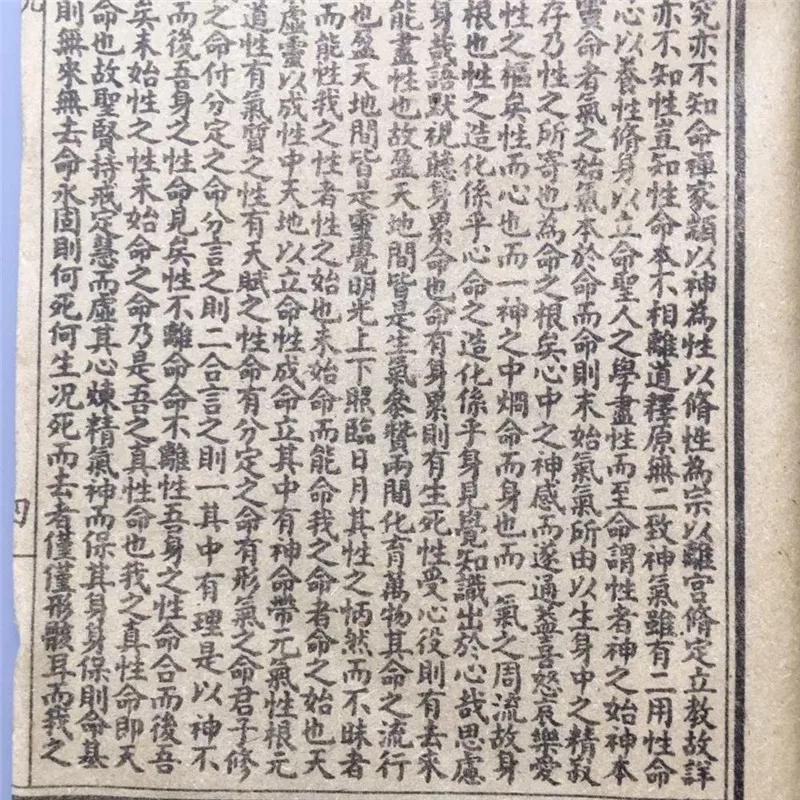 究亦不知命禪家類以神為性以脩性為宗以離宮脩定立教故詳
亦不知性豈知性命本不相離道釋原無二致神氣雖有二用性命
心以養性脩身以立命聖人之學盡性而至命謂性者神之始神本
靈命者氣之始氣本於命而命則未始氣氣所由以生身中之精寂
存乃性之所寄也為命之根矣心中之神感而遂通蓋喜怒哀樂愛
性之樞矣性而心也而一神之中烱命而身也而一氣之周流故身
根也性之造化係乎心命之造化係乎身見覺知識出於心哉思慮
身哉語默視聽身累命也命有身累則有生死性受心役則有去來
能盡性也故盈天地間皆是生氣參贊兩間化育萬物其命之流行
也盈天地間皆是靈覺明光上下照臨日月其性之炳然而不昧者
而能性我之性者性之始也未始命而能命我之命者命之始也天
虛靈以成性中天地以立命性成命立其中有神命帶元氣性根元
道性有氣質之性有天賦之性命有分定之命有形氣之命君子修
之命付分定之命分言之則二合言之則一其中有理是以神不
而後吾身之性命見矣性不離命命不離性吾身之性命合而後吾
矣未始性之性未始命之命乃是吾之真性命也我之真性命即天
命也故聖賢持戒定慧而虛其心煉精氣神而保其身身保則命基
則無來無去命永固則何死何生况死而去者僅僅形骸耳而我之
四